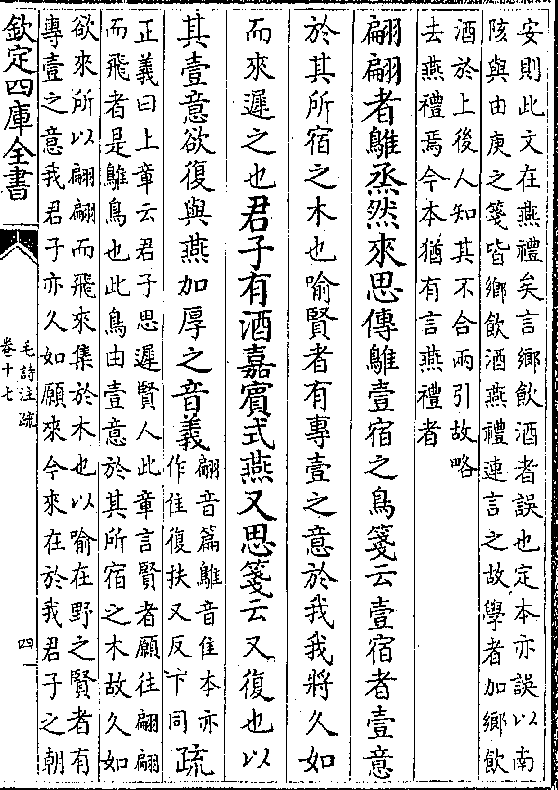 安則此文在燕禮矣言鄉飲酒者誤也定本亦誤以南
陔與由庚之箋皆鄉飲酒燕禮連言之故學者加鄉飲
酒於上後人知其不合兩引故略
去燕禮焉今本猶有言燕禮者
翩翩者鵻烝然來思傳鵻壹宿之鳥箋云壹宿者壹意
於其所宿之木也喻賢者有專壹之意於我我將久如
而來遲之也君子有酒嘉賓式燕又思箋云又復也以
其壹意欲復與燕加厚之音義
翩音篇鵻音隹本亦
作隹復扶又反下同
疏
正義曰上章云君子思遲賢人此章言賢者願往翩翩
而飛者是鵻鳥也此鳥由壹意於其所宿之木故久如
欲來所以翩翩而飛來集於木也以喻在野之賢者有
專壹之意我君子亦久如願來今來在於我君子之朝
欽定四庫全書
毛詩注疏
卷十七
四